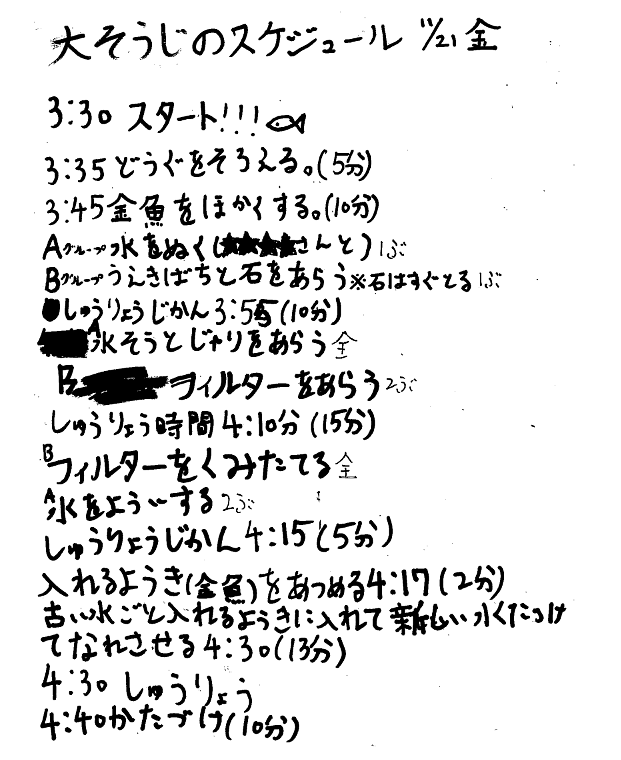 大そうじのスケジュール 11/21 金
3:30 スタート!!!
3:35 どうぐをそろえる。(5分)
3:45 金魚をほかくする。(10分)
Aグループ 水をぬく( さんと) 1ぷ
Bグループ うえきばちと石をあらう※石はすぐとる 1ぷ
しゅうりょうじかん 3:55 (10分)
A 水そうとじゃりをあらう 全
B フィルターをあらう 2ぷ
しゅうりょう時間 4:10分 (15分)
B フィルターをくみたてる 全
A 水をよういする 2ぷ
しゅうりょうじかん 4:15 (5分)
入れるようき(金魚)をあつめる 4:17 (2分)
古い水ごと入れるようきに入れて新しい水くだつけ
てなれさせる 4:30 (13分)
4:30 しゅうりょう
4:40 かたづけ (10分)